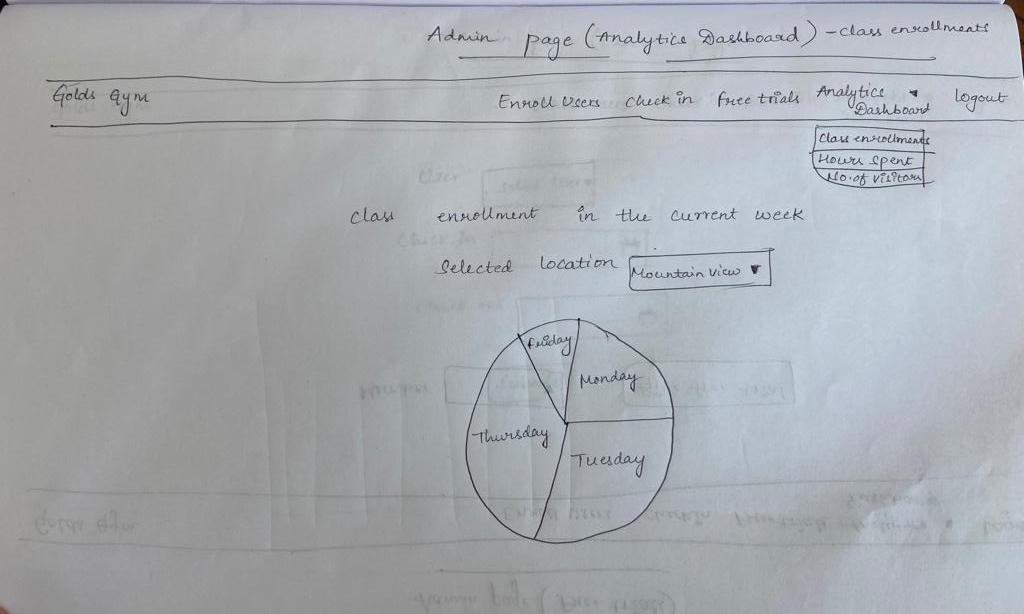 Admin page (Analytics Dashboard) - class enrollments
Golds Gym Enroll Users Check in free trials Analytics Dashboard logout
Class enrollments
Hours spent
No. of visitors
Class enrollment in the current week
Selected location Mountain view
Friday
Monday
Thursday
Tuesday